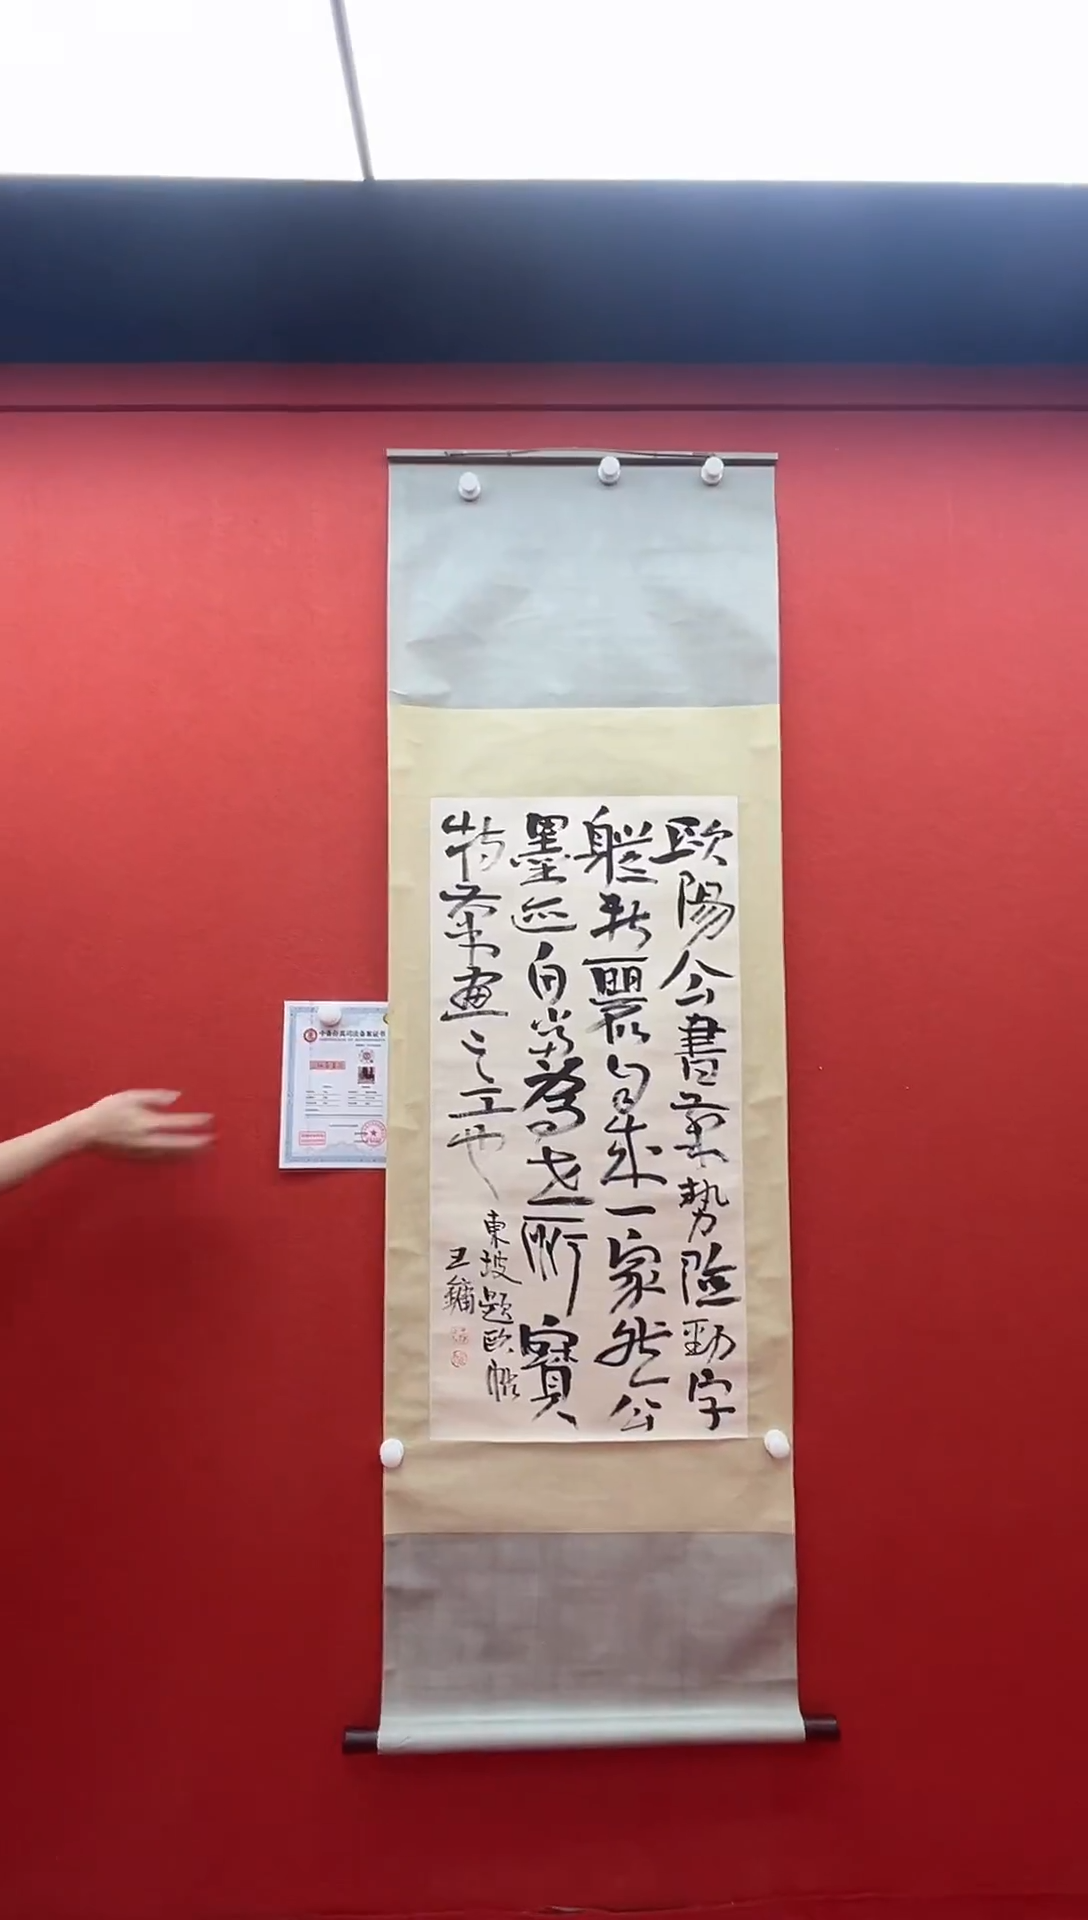 歐陽公書筆勢險勁字
軆新麗自成一家然公
墨迹自當為世所寶
特筆畫之工也
東坡題歐帖
王鏞